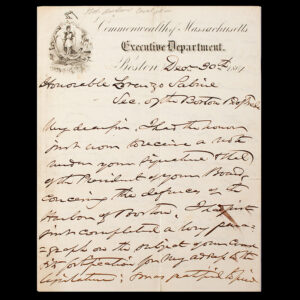 Commonwealth of Massachusetts
Executive Department.
Boston Dec. 30th 1861
Honorable Lorenzo Sabine
Sec. of the Boston
My dear Sir, I had the honor
just now to receive a note
under your signature &
of the President of your Board,
concerning the defences of the
Harbor of Boston. I had just
just completed a long para-
graph on the subject of our coast
fortification for my address to the
Legislature;